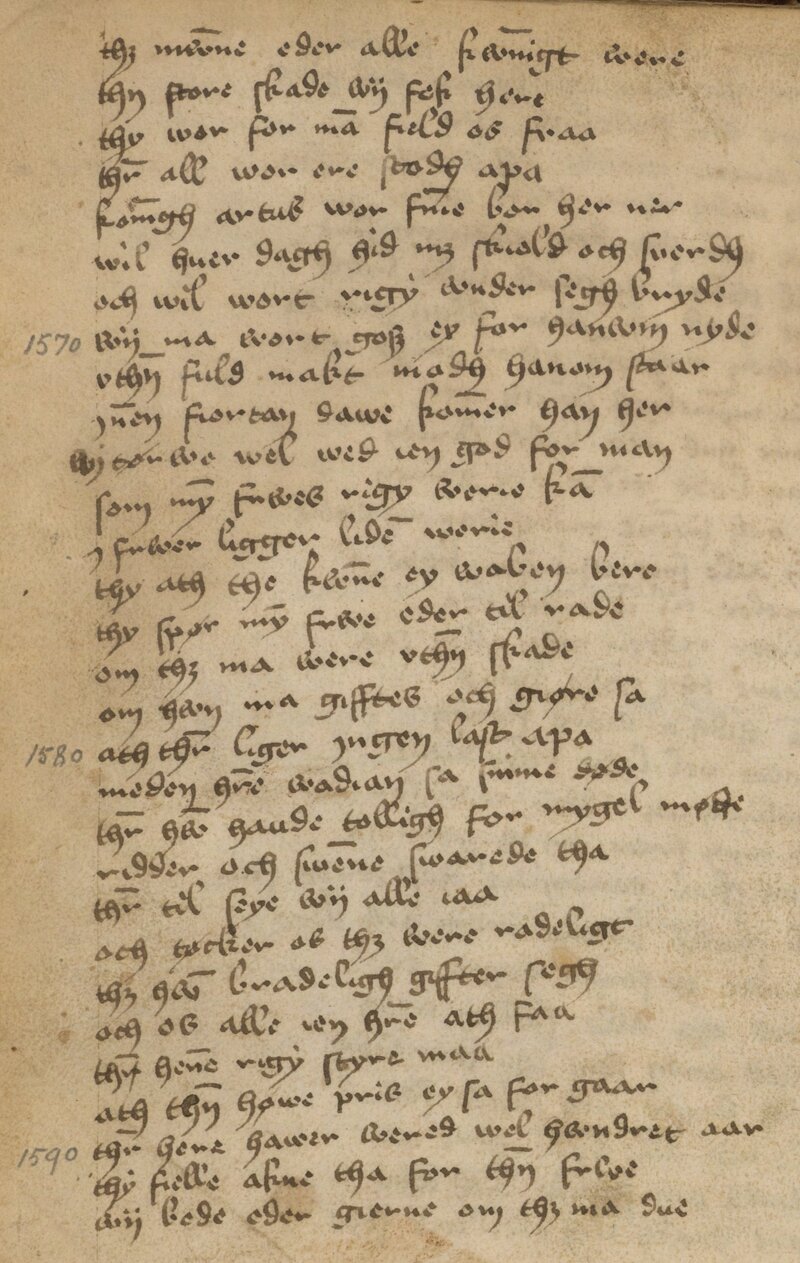 thz mwne eder alle kwnigt were
thn store skade wij fek here
thy wor for ma field os fraa
thr all wor ere stodh apa
koningh artus wor sine bon her ner
wil huer dagh hid mz skiold och suerdh
och wil wort rigy wnder segh bryde
1570 wij ma wort gotz ey for hanwm nyde
vthn fuld makt modh hanom staar
jnen fiortan dawe komer han her
wij torwe wel wed ien god for man
som my frwes rigy werie ka
j frwer ligger lide werie
thy ath the kwne ey waben bere
thy spør my frwe eder til rade
om thz ma were vthn skade
om hwn ma gifftes och giøre sa
1580 ath thr liger jngen last apa
meden hre wadian sa sinne døde
thr hw haude tolligh for mygel møde
ridder och swene swarede tha
thr til seye wij alle iaa
och tøcker os thz were radeligt
thz hw bradeligh giffter segh
och os alle ien hre ath faa
thr hene rigy styre maa
ath thn høwe pris ey sa for gaar
1590 thr here hawer wered wel hwndret aar
thy fielle akne tha for thn frwe
wij bede eder gierne om thz ma due